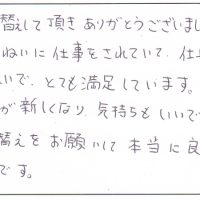 替えして頂きありがとうございまし
ねいに仕事をされていて、仕
いで、とても満足しています。
が新しくなり、気持ちもいいで
替えをお願いして本当に良
です。